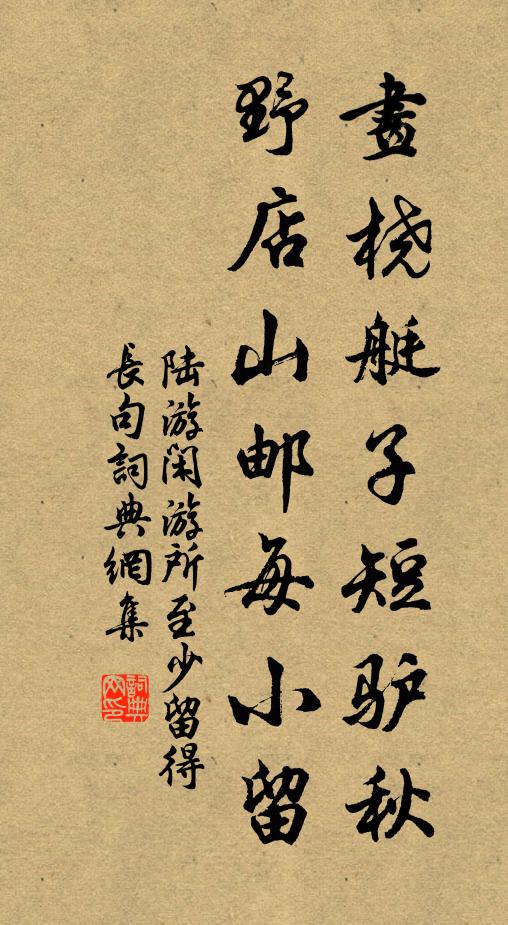 畫桡艇子短驴秋
野店山邮每小留
陆游闲游所至少留得
長句詞典網集
詞典网印